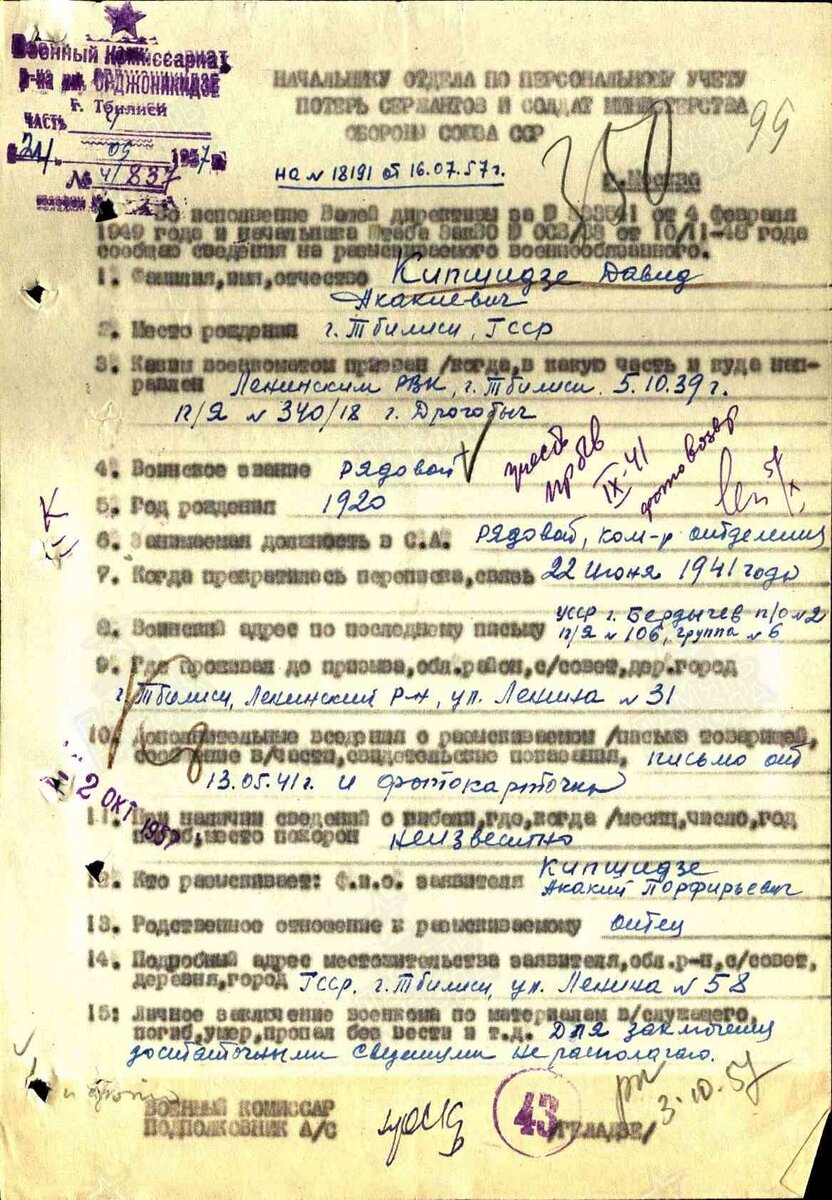 Военный Комиссариат
р-на им. ОРДЖОНИКИДЗЕ
г. Тбилиси
ЧАСТЬ 4
"24." 09 1957 г.
№ 4/837
НАЧАЛЬНИКУ ОТДЕЛА ПО ПЕРСОНАЛЬНОМУ УЧЕТУ
ПОТЕРЬ СЕРЖАНТОВ И СОЛДАТ МИНИСТЕРСТВА
ОБОРОНЫ СОЮЗА ССР
350 99
на № 18191 от 16.07.57г.
г.Москва
Во исполнение Вашей директивы за от 4 февраля
1949 года и начальника Штаба ЗакВО от 10/11-48 года
сообщаю сведения на разыскиваемого военнообязанного.
1. Фамилия,имя,отчество Кипшидзе Давид
Акакиевич
2. Место рождения г. Тбилиси, ГССР
3. Каким военкоматом призван /когда,в какую часть и куда нап-
равлен Ленинским РВК, г. Тбилиси. 5.10.39г.
п/я № 340/18 г. Дрогобыч
4. Воинское звание рядовой
учесть
пр б/в
IX-41
5. Год рождения 1920
6. Занимаемая должность в С.А. рядовой, ком-р отделения
7. Когда прекратилась переписка,связь 22 июня 1941 года
8. Воинский адрес по последнему письму УССР г. Бердычев п/о № 2
п/я № 106, группа № 6
9. Где проживал до призыва,обл.район,с/совет,дер.город
г. Тбилиси, Ленинский р-н, ул. Ленина № 31
10. Дополнительные сведения о разыскиваемом /письма товарищей,
сообщение в/части,свидетельские показания, письмо от
13.05.41г. и фотокарточка
2 ОКТ 1957
11. При наличии сведений о гибели,где,когда /месяц,число,год
погиб,место похорон неизвестно
12. Кто разыскивает: ф.и.о. заявителя Кипшидзе
Акакий Порфирьевич
13. Родственное отношение к разыскиваемому отец
14. Подробный адрес местожительства заявителя,обл.р-н,с/совет,
деревня,город ГССР. г. Тбилиси, ул. Ленина № 58
15: Личное заключение военкома по материалам в/служащего,
погиб,умер,пропал без вести и т.д. Для заключения
достаточными сведениями не располагаю.
3.10.57
ВОЕННЫЙ КОМИССАР
ПОДПОЛКОВНИК А/С
43
/ГУЛАДЗЕ/